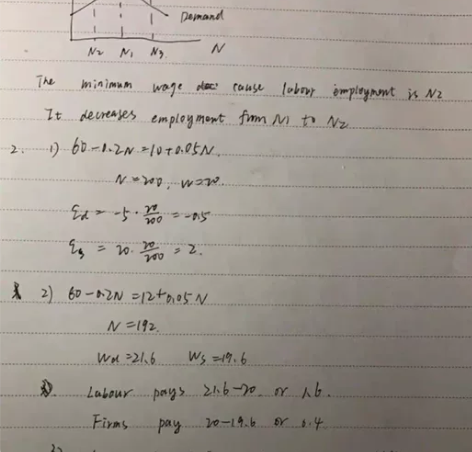 Demand
N2 N1 N3 N
The minimum wage cause labour employment is N2
It decreases employment from N1 to N2
2. 1) 60-0.2N=10+0.05N.
N=200, W=20.
Ed = -5 · 20/200 = -0.5
Es = 20 · 20/200 = 2.
2) 60-0.2N=12+0.05N
N=192.
Wd=21.6 Ws=19.6
Labour pays 21.6-20 or 1.6.
Firms pay 20-19.6 or 0.4